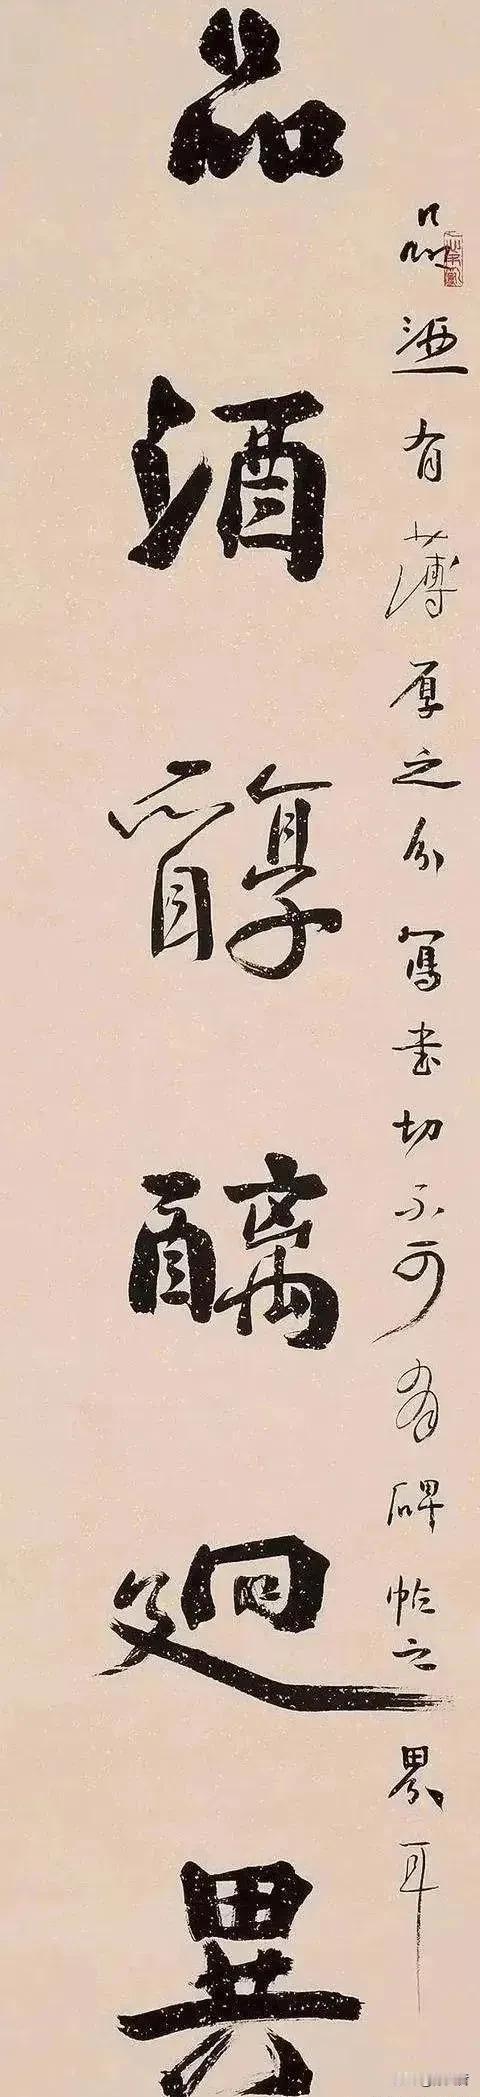 品酒醇醨迥異
品酒有薄厚之分寫書切不可有碑帖之界耳